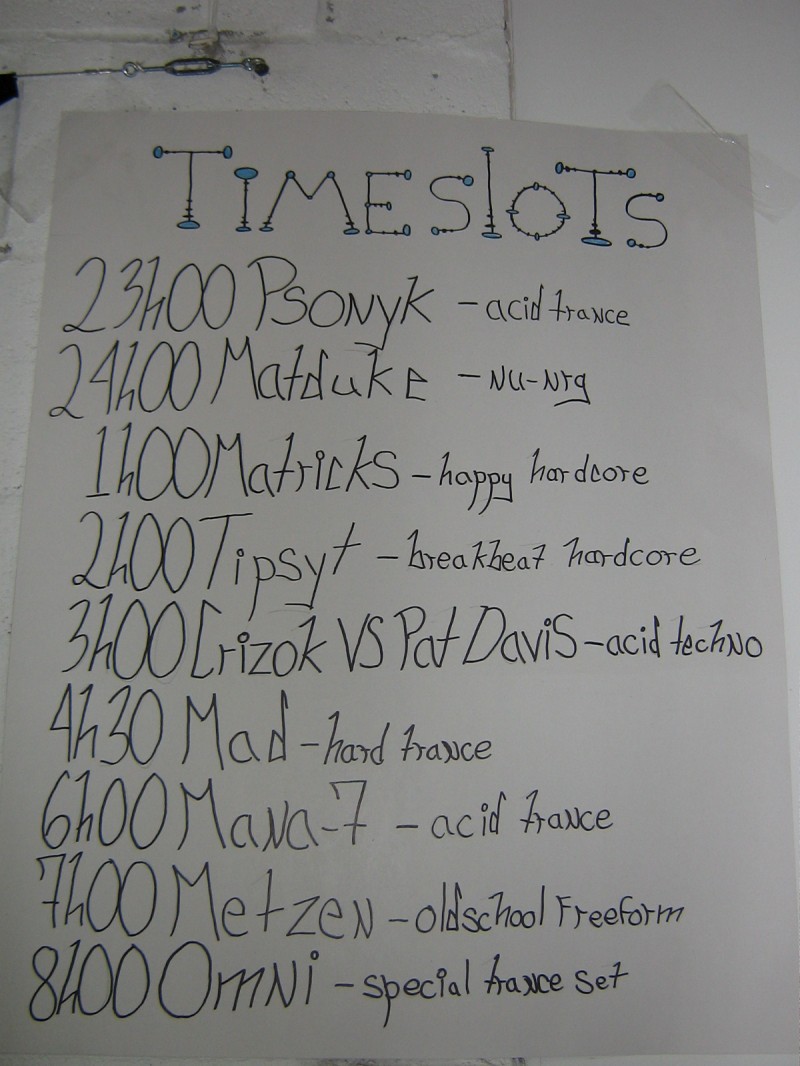 TimEslOTs
23h00 Psonyk - acid trance
24h00 Matduke - Nu-Nrg
1h00 Matricks - happy hardcore
2h00 Tipsyt - breakbeat hardcore
3h00 Crizok VS Pat Davis - acid techno
4h30 Mad - hard trance
6h00 Mana-7 - acid trance
7h00 Metzen - oldschool Freeform
8h00 Omni - special trance set